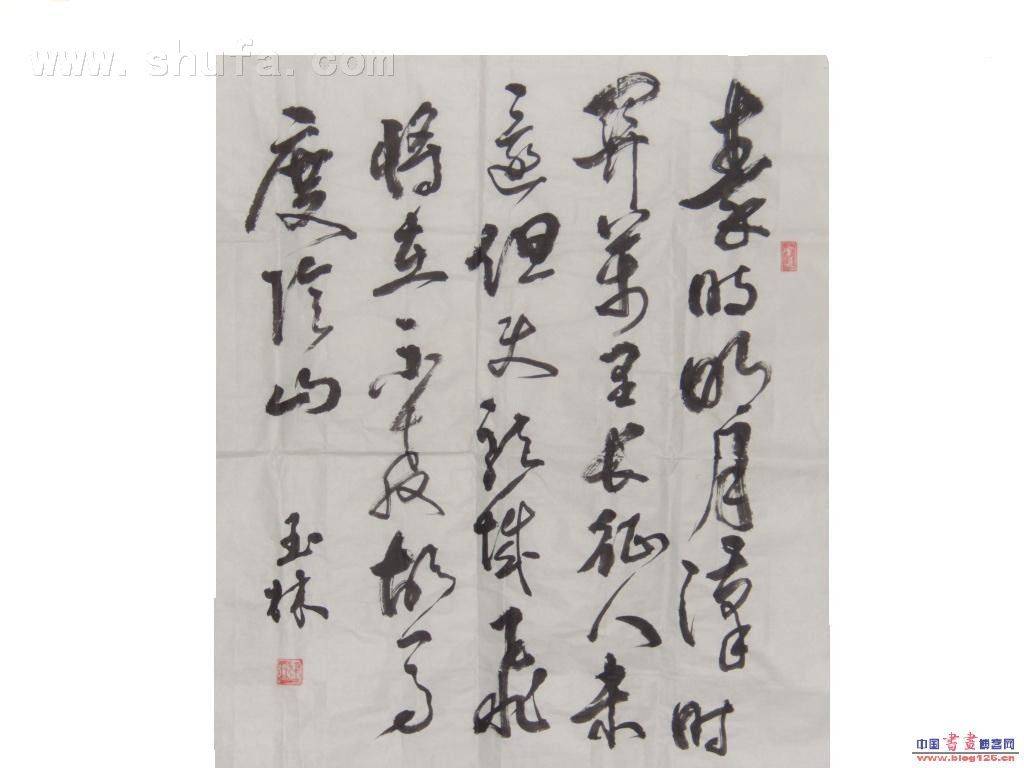 www.shufa.com
秦时明月漢时
關萬里长征人未
還但使龍城飛
將在不教胡馬
度陰山
玉林
中国書畫博客网
www.blog126.cn